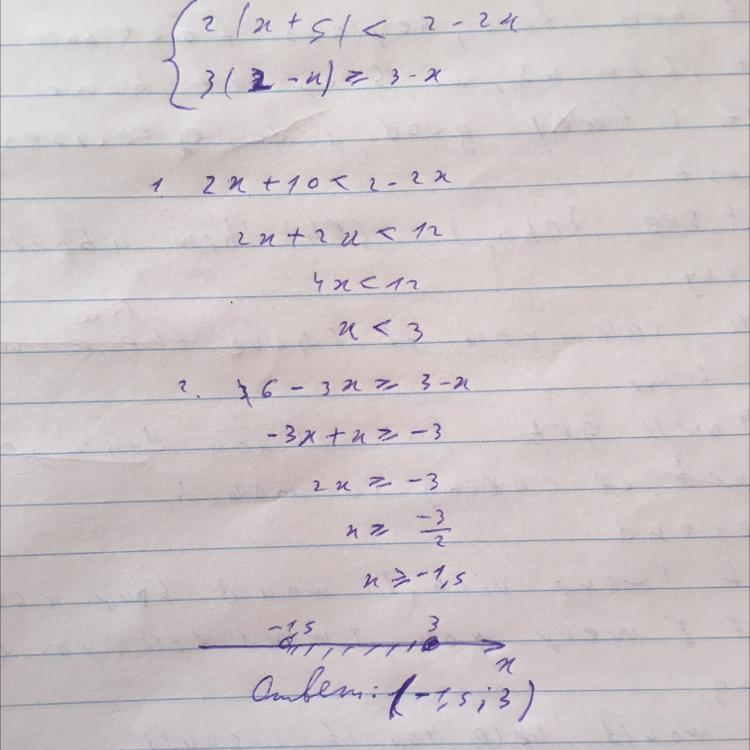 2(x+5)< 2-2x
3(2-x)≥ 3-x
1. 2x+10< 2-2x
2x+2x< 12
4x<12
x < 3
2. 6-3x≥ 3-x
-3x+x≥ -3
2x ≥ -3
x≥ -3/2
x≥-1,5
-1,5 3
x
Ответ: (-1,5;3)